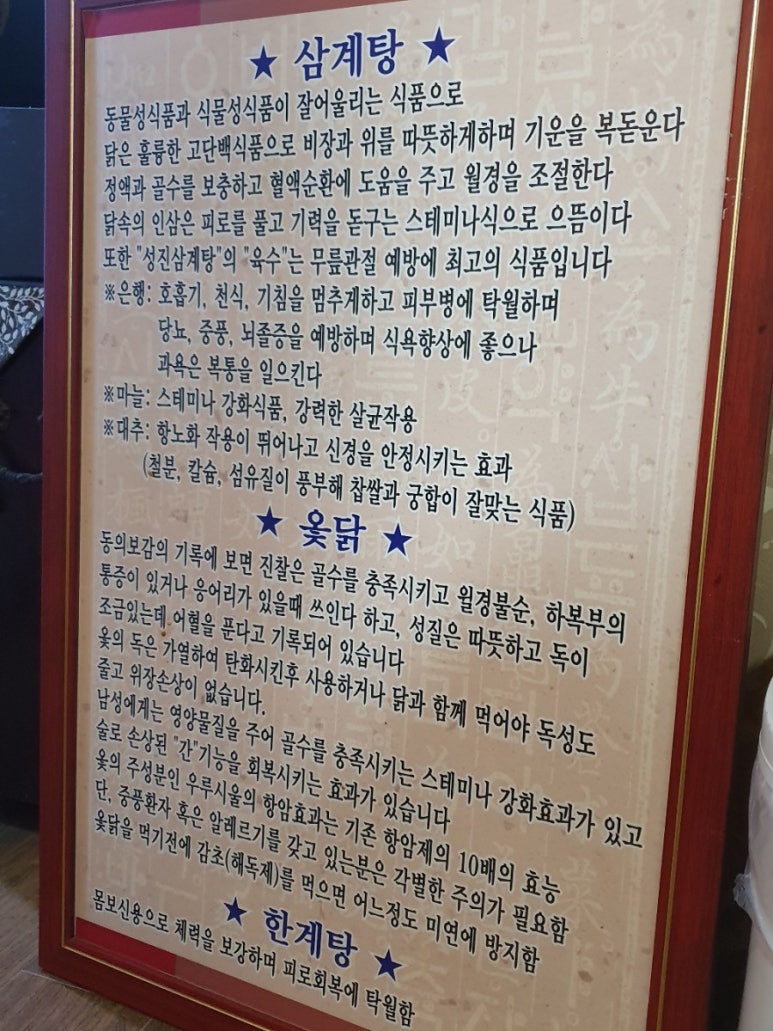 ★ 삼계탕 ★
동물성식품과 식물성식품이 잘어울리는 식품으로
닭은 훌륭한 고단백식품으로 비장과 위를 따뜻하게하며 기운을 복돋운다
정액과 골수를 보충하고 혈액순환에 도움을 주고 월경을 조절한다
닭속의 인삼은 피로를 풀고 기력을 돋구는 스테미나식으로 으뜸이다
또한 "성진삼계탕"의 "육수"는 무릎관절 예방에 최고의 식품입니다
※은행: 호흡기, 천식, 기침을 멈추게하고 피부병에 탁월하며
당뇨, 중풍, 뇌졸증을 예방하며 식욕향상에 좋으나
과욕은 복통을 일으킨다
※마늘: 스테미나 강화식품, 강력한 살균작용
※대추: 항노화 작용이 뛰어나고 신경을 안정시키는 효과
(철분, 칼슘, 섬유질이 풍부해 찹쌀과 궁합이 잘맞는 식품)
★ 옻닭 ★
동의보감의 기록에 보면 진찰은 골수를 충족시키고 월경불순, 하복부의
통증이 있거나 응어리가 있을때 쓰인다 하고, 성질은 따뜻하고 독이
조금있는데 어혈을 푼다고 기록되어 있습니다
옻의 독은 가열하여 탄화시킨후 사용하거나 닭과 함께 먹어야 독성도
줄고 위장손상이 없습니다.
남성에게는 영양물질을 주어 골수를 충족시키는 스테미나 강화효과가 있고
술로 손상된 "간"기능을 회복시키는 효과가 있습니다
옻의 주성분인 우루시올의 항암효과는 기존 항암제의 10배의 효능
단, 중풍환자 혹은 알레르기를 갖고 있는분은 각별한 주의가 필요함
옻닭을 먹기전에 감초(해독제)를 먹으면 어느정도 미연에 방지함
★ 한계탕 ★
몸보신용으로 체력을 보강하며 피로회복에 탁월함